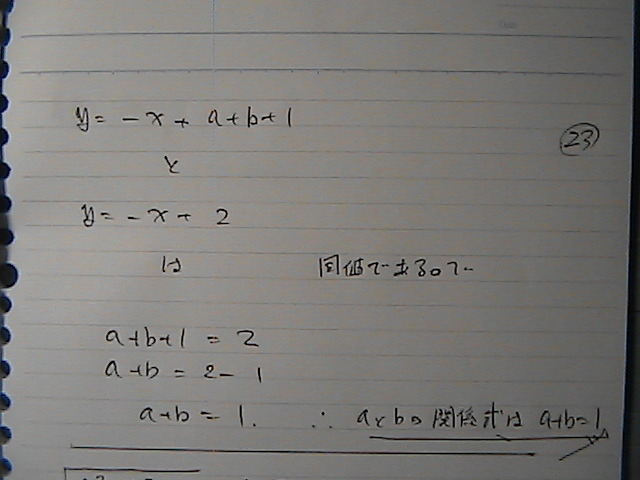 y = -x + a+b+1
㉓
と
y = -x + 2
は 同値であるので
a+b+1 = 2
a+b = 2-1
a+b = 1. ∴ aとbの関係式は a+b=1